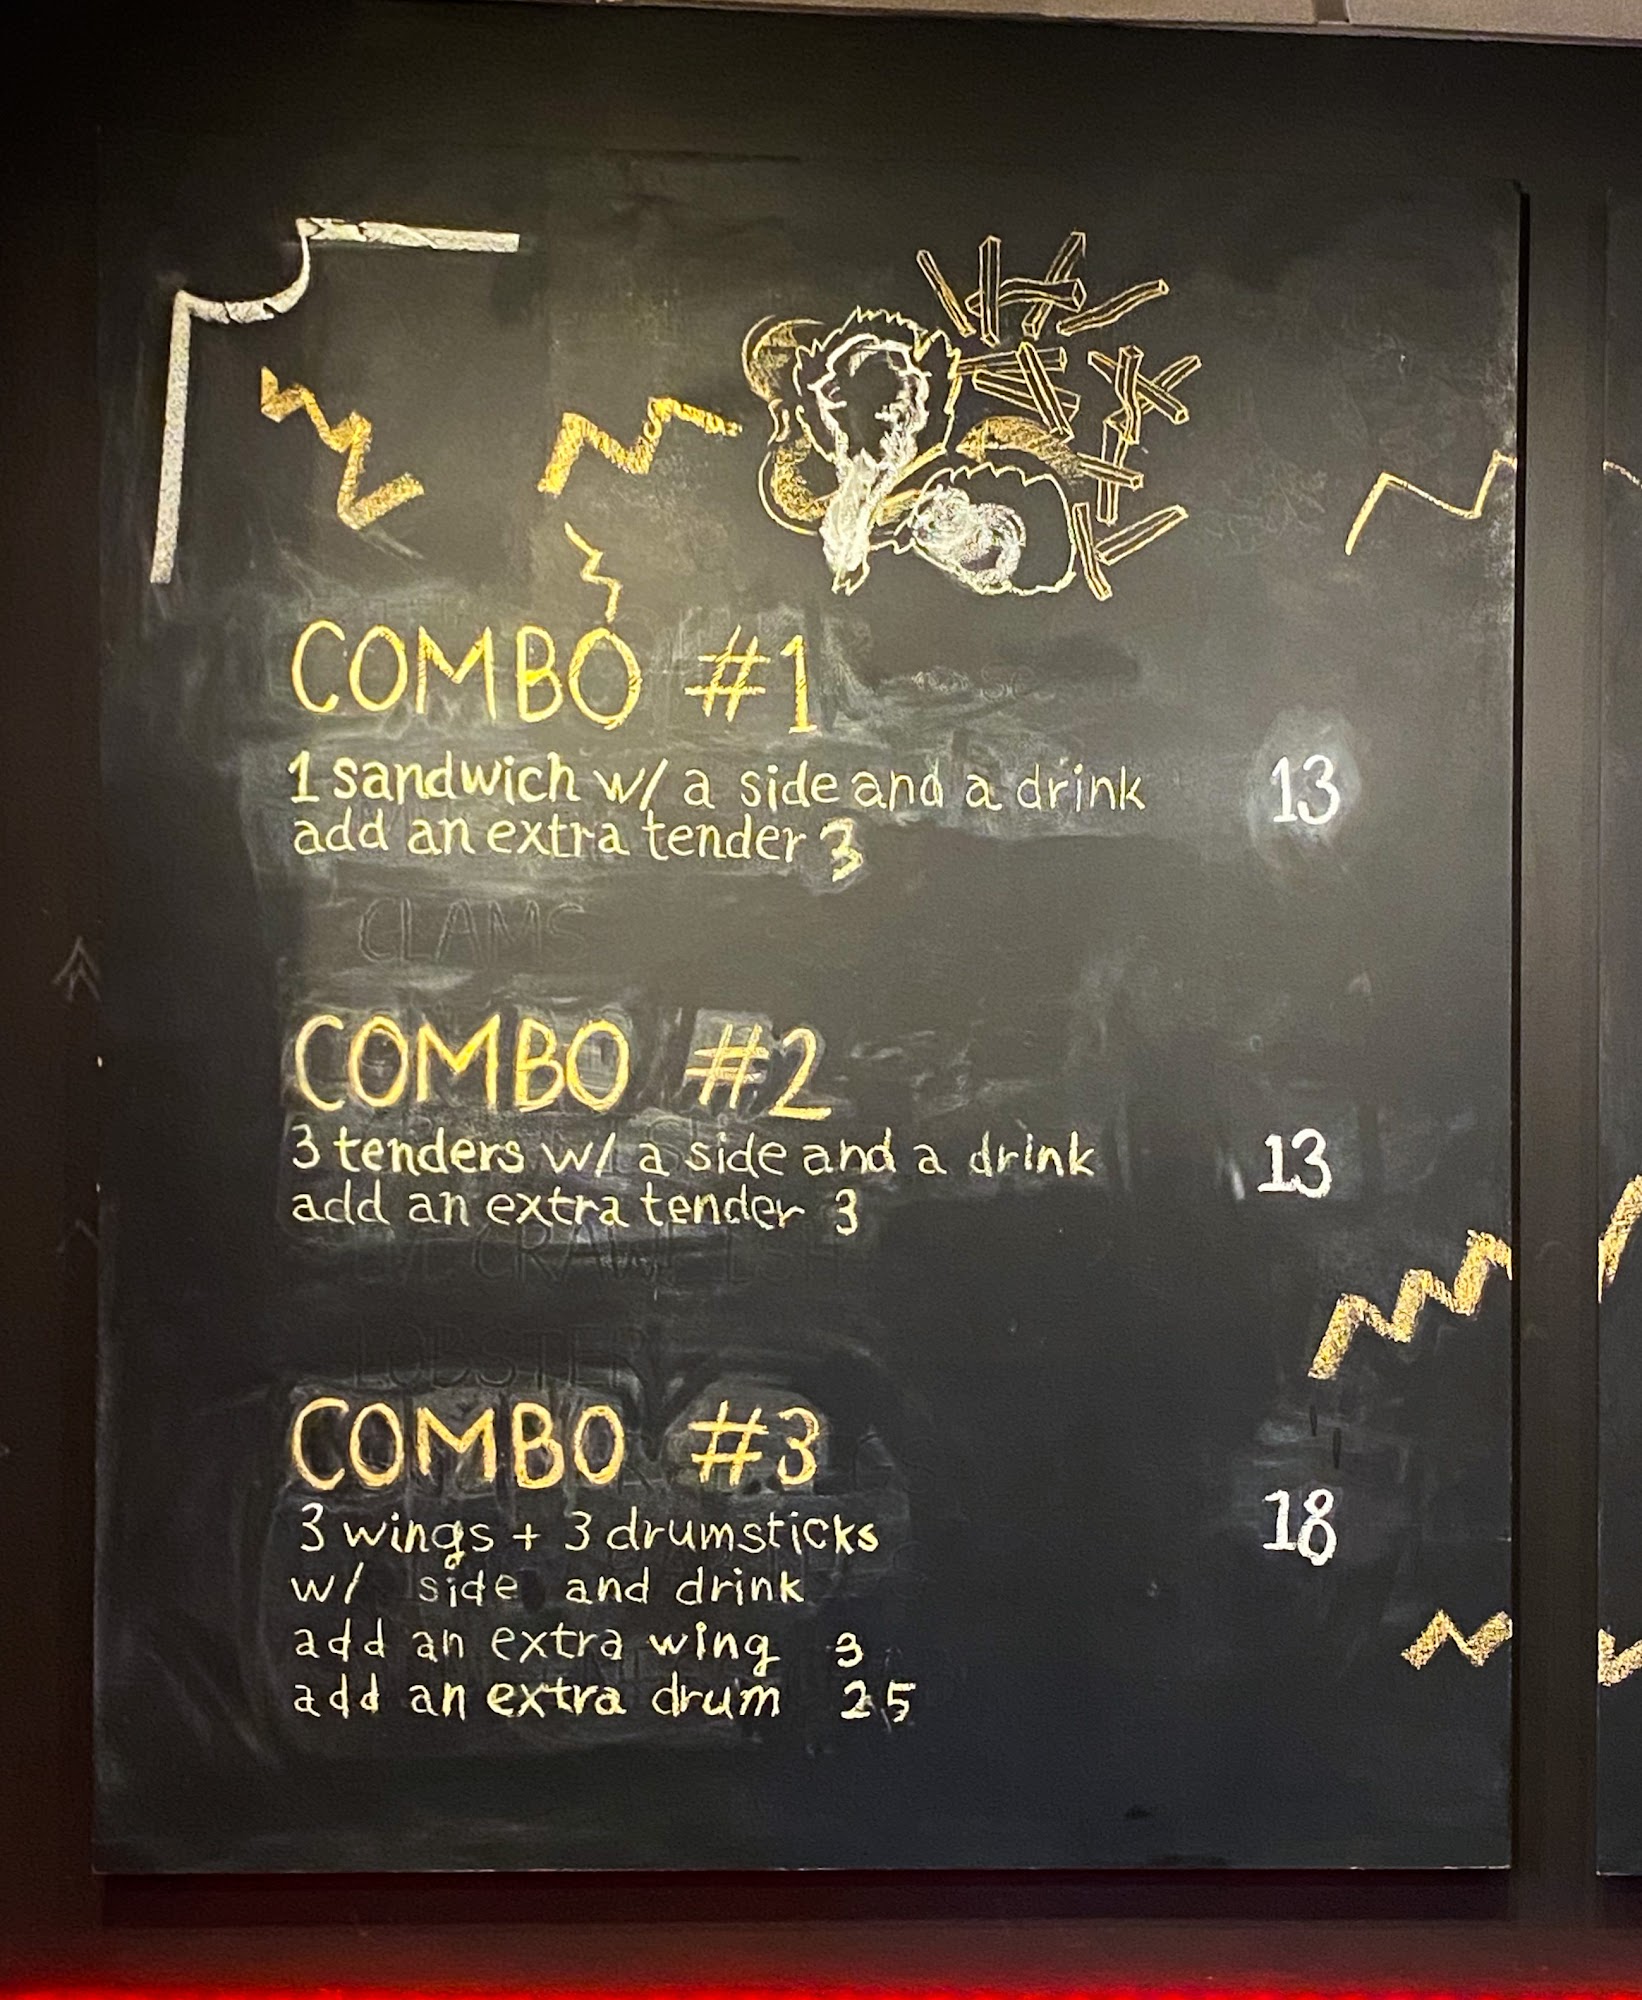 COMBO #1
1 sandwich w/ a side and a drink 13
add an extra tender 3
CLAMS
COMBO #2
3 tenders w/ a side and a drink 13
add an extra tender 3
LOBSTER
COMBO #3
3 wings + 3 drumsticks 18
w/ side and drink
add an extra wing 3
add an extra drum 2.5